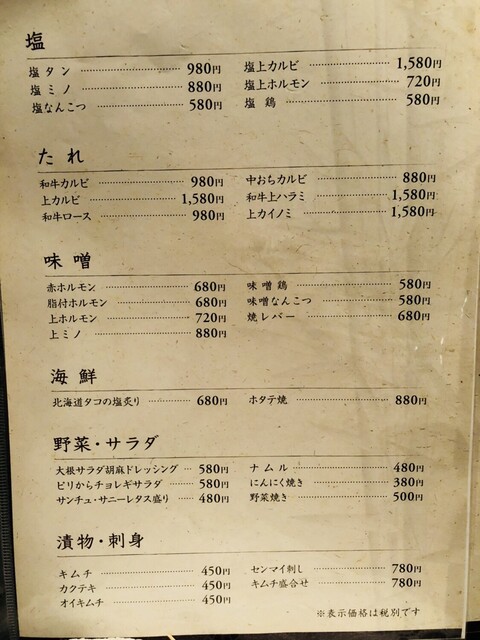 塩
塩タン 980円
塩ミノ 880円
塩なんこつ 580円
塩上カルビ 1,580円
塩上ホルモン 720円
塩鶏 580円
たれ
和牛カルビ 980円
上カルビ 1,580円
和牛ロース 980円
中おちカルビ 880円
和牛上ハラミ 1,580円
上カイノミ 1,580円
味噌
赤ホルモン 680円
脂付ホルモン 680円
上ホルモン 720円
上ミノ 880円
味噌鶏 580円
味噌なんこつ 580円
焼レバー 680円
海鮮
北海道タコの塩炙り 680円
ホタテ焼 880円
野菜・サラダ
大根サラダ胡麻ドレッシング 580円
ピリからチョレギサラダ 580円
サンチュ・サニーレタス盛り 480円
ナムル 480円
にんにく焼き 380円
野菜焼き 500円
漬物・刺身
キムチ 450円
カクテキ 450円
オイキムチ 450円
センマイ刺し 780円
キムチ盛合せ 780円
※表示価格は税別です